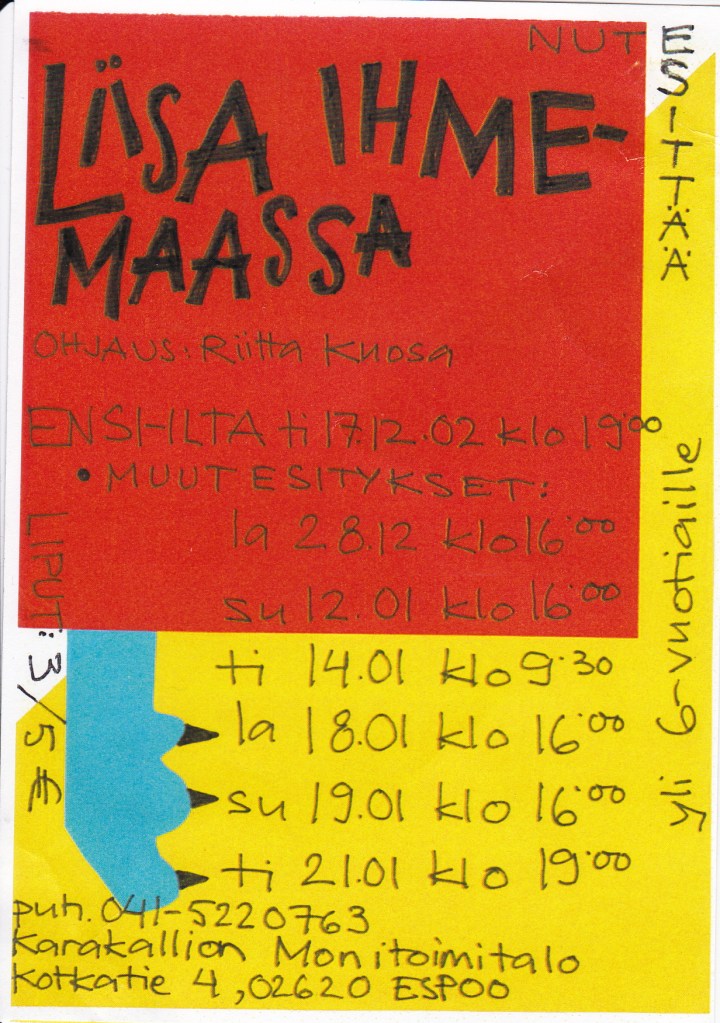 NUT
ESITTÄÄ
LiiSA IHME-
MAASSA
OHJAUS: Riitta Kuosa
ENSI-ILTA ti 17.12.02 klo 19:00
• MUUT ESITYKSET:
la 28.12 klo 16:00
su 12.01 klo 16:00
ti 14.01 klo 9:30
la 18.01 klo 16:00
su 19.01 klo 16:00
ti 21.01 klo 19:00
LIPUT: 3/5 €
yli 6-vuotiaille
puh. 041-5220763
Karakallion Monitoimitalo
Kotkatie 4, 02620 ESPOO